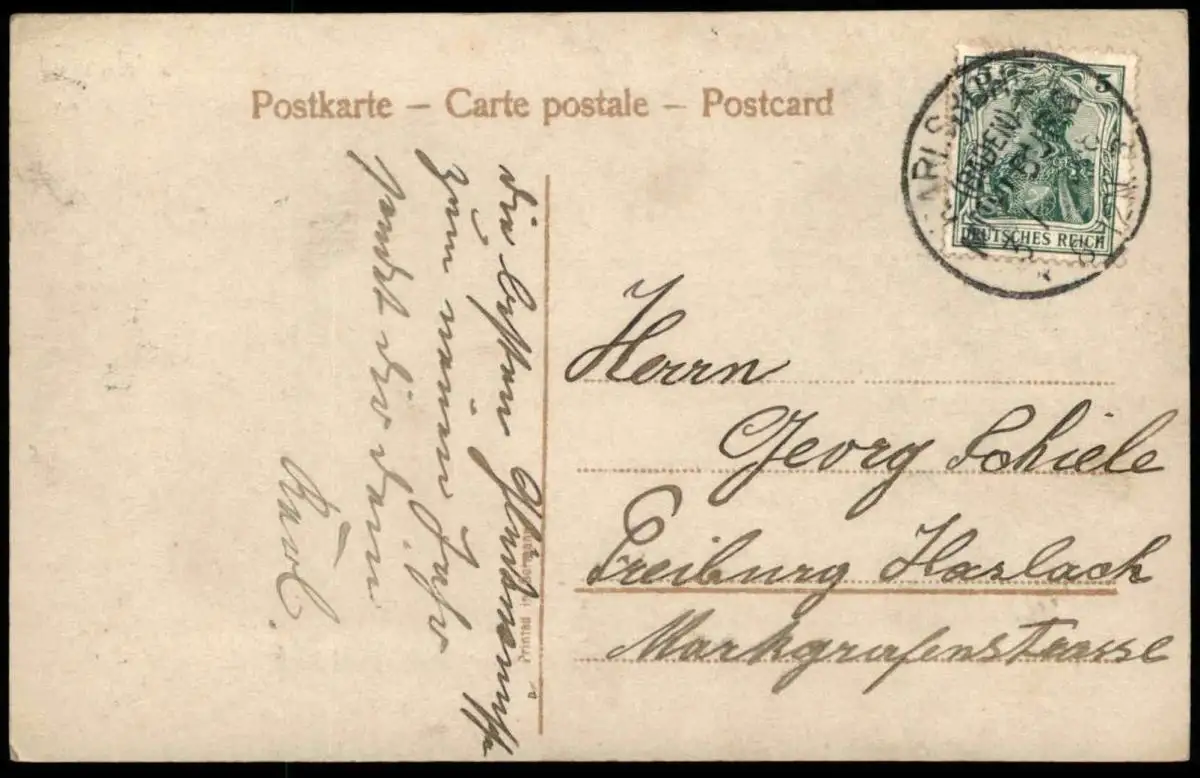 Postkarte – Carte postale – Postcard
5
DEUTSCHES REICH
KARLSRUHE
(BADEN)
die besten Glückwünsche
zum neuen Jahr
sendet dir dein
Karl.
Herrn
Georg Schiele
Freiburg Haslach
Markgrafenstrasse
Printed in Germany